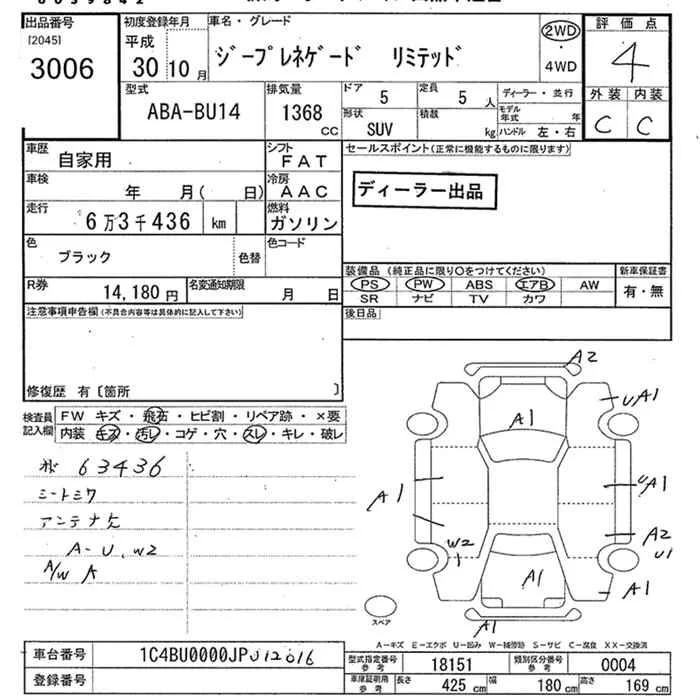 出品番号
[2045]
3006
初度登録年月
平成
30 10 月
車名・グレード
ジープレネゲード リミテッド
2WD
・
4WD
評価点
4
外装 内装
C C
型式
ABA-BU14
排気量
1368
CC
ドア
5
定員
5 人
形状
SUV
積載
kg
ディーラー・並行
モデル
年式 年
ハンドル 左・右
車歴
自家用
シフト
FAT
車検
年 月( 日)
冷房
AAC
走行
6万3千436 km
燃料
ガソリン
色
ブラック
色替
色コード
R券
14,180 円
名変通知期限
月 日
セールスポイント(正常に機能するものに限ります)
ディーラー出品
装備品 (純正品に限り〇をつけてください)
PS PW ABS エアB AW
SR ナビ TV カワ
新車保証書
有・無
後日品
注意事項申告欄(不具合内容等は具体的に記入して下さい)
修復歴 有〔箇所 〕
検査員
記入欄
FW キズ・飛石・ヒビ割・リペア跡・×要
内装 キズ・汚レ・コゲ・穴・スレ・キレ・破レ
63436
シートシワ
アンテナ欠
A-U、W2
A/W A
A2
UA1
A1
A1
UA1
W2
A2
U1
A1
A1
A1
スペア
A-キズ E-エクボ U-凹み W-補修跡 S-サビ C-腐食 XX-交換済
車台番号
1C4BU0000JP012016
登録番号
型式指定番号
参考
18151
類別区分番号
参考
0004
車庫証明用
参考
長さ
425 cm
幅
180 cm
高さ
169 cm